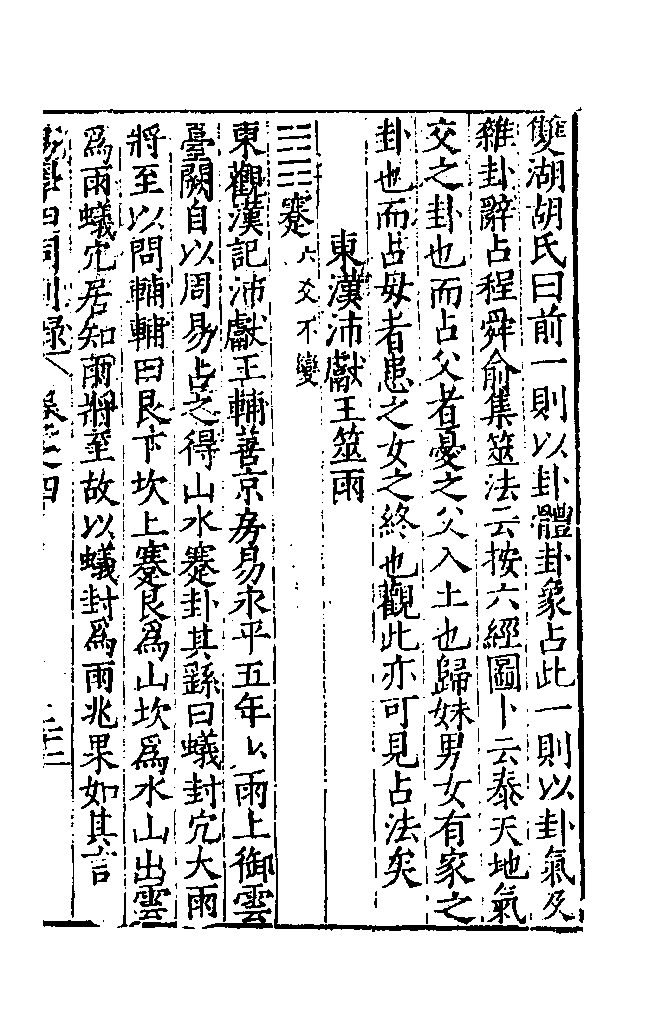 雙湖胡氏曰前一則以卦體卦象占此一則以卦氣及
雜卦辭占程舜俞集筮法云按六經圖卜云泰天地氣
交之卦也而占父者憂之父入土也歸妹男女有家之
卦也而占母者患之女之終也觀此亦可見占法矣
東漢沛獻王筮雨
䷦蹇六爻不變
東觀漢記沛獻王輔善京房易永平五年少雨上御雲
臺闕自以周易占之得山水蹇卦其繇曰蟻封穴大雨
將至以問輔輔曰艮下坎上蹇艮爲山坎爲水山出雲
爲雨蟻穴居知雨將至故以蟻封爲雨兆果如其言